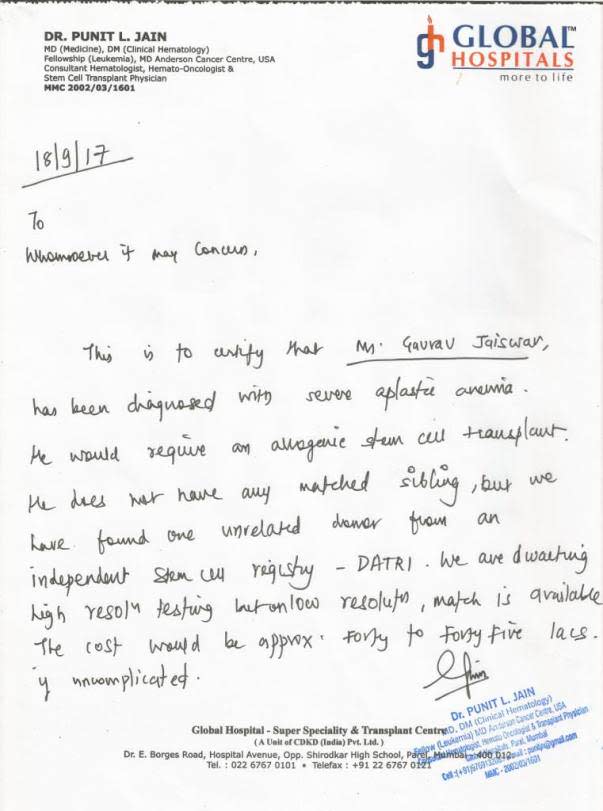 DR. PUNIT L. JAIN
MD (Medicine), DM (Clinical Hematology)
Fellowship (Leukemia), MD Anderson Cancer Centre, USA
Consultant Hematologist, Hemato-Oncologist &
Stem Cell Transplant Physician
MMC 2002/03/1601
gh GLOBAL™
HOSPITALS
more to life
18/9/17
To
Whomsoever it may concern,
This is to certify that Mr. Gaurav Jaiswar,
has been diagnosed with severe aplastic anemia.
He would require an allogenic stem cell transplant.
He does not have any matched sibling, but we
have found one unrelated donor from an
independent stem cell registry - DATRI. We are awaiting
high resoln testing but on low resolutn, match is available
The cost would be approx. forty to forty five lacs.
if uncomplicated.
Dr. PUNIT L. JAIN
MD, DM (Clinical Hematology)
Fellow (Leukemia) MD Anderson Cancer Centre, USA
Consultant Hematologist, Hemato Oncologist & Transplant Physician
Global Hospitals, Parel, Mumbai
MMC - 2002/03/1601
Global Hospital - Super Speciality & Transplant Centre
(A Unit of CDKD (India) Pvt. Ltd.)
Dr. E. Borges Road, Hospital Avenue, Opp. Shirodkar High School, Parel, Mumbai - 400 012.
Tel. : 022 6767 0101 • Telefax : +91 22 6767 0121